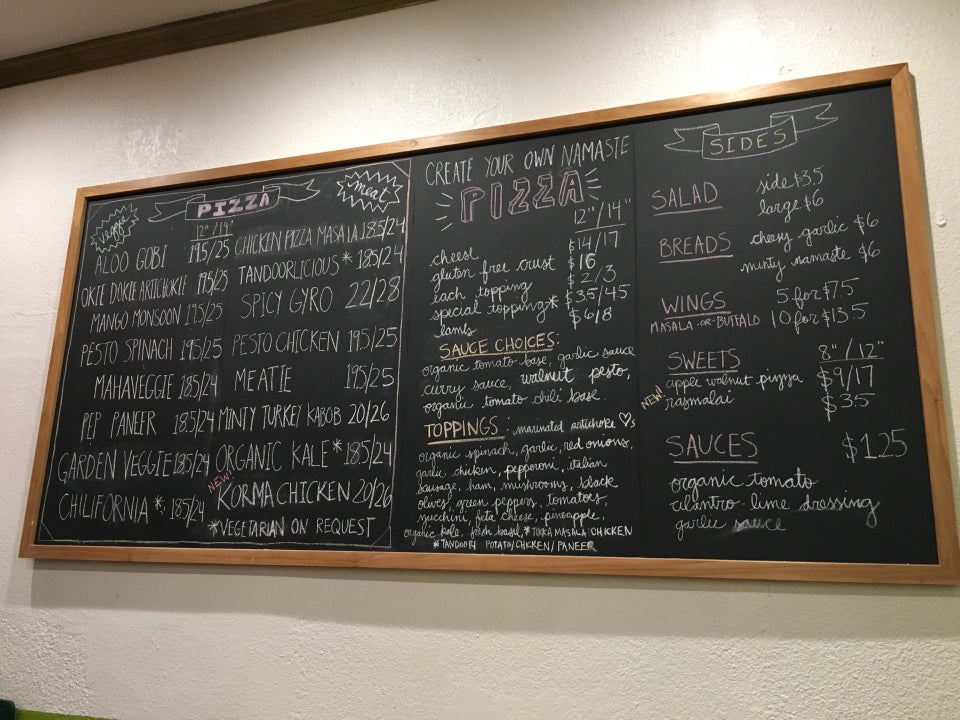 veggie
PIZZA
meat
12" / 14"
ALOO GOBI 195/25
OKIE DOKIE ARTICHOKIE 195/25
MANGO MONSOON 195/25
PESTO SPINACH 195/25
MAHAVEGGIE 18.5/24
PEP PANEER 18.5/24
GARDEN VEGGIE 18.5/24
CHILIFORNIA * 18.5/24
CHICKEN PIZZA MASALA 18.5/24
TANDOORLICIOUS * 185/24
SPICY GYRO 22/28
PESTO CHICKEN 195/25
MEATIE 195/25
MINTY TURKEY KABOB 20/26
ORGANIC KALE * 18.5/24
NEW!
KORMA CHICKEN 20/26
*VEGETARIAN ON REQUEST
CREATE YOUR OWN NAMASTE
PIZZA
12" / 14"
cheese $14/17
gluten free crust $16
each topping $2/3
special topping* $3.5/4.5
lamb $6/8
SAUCE CHOICES:
organic tomato base, garlic sauce
curry sauce, walnut pesto,
organic tomato chili base.
TOPPINGS: marinated artichoke ♡s
organic spinach, garlic, red onions,
garlic chicken, pepperoni, italian
sausage, ham, mushrooms, black
olives, green peppers, tomatoes,
zucchini, feta cheese, pineapple,
organic kale, fresh basil, *TIKKA MASALA CHICKEN
*TANDOORI POTATO/CHICKEN/PANEER
SIDES
SALAD side $3.5
large $6
BREADS cheesy garlic $6
minty namaste $6
WINGS 5 for $7.5
MASALA -OR- BUFFALO 10 for $13.5
SWEETS 8" / 12"
apple walnut pizza $9/17
NEW!
rasmalai $3.5
SAUCES $1.25
organic tomato
cilantro lime dressing
garlic sauce